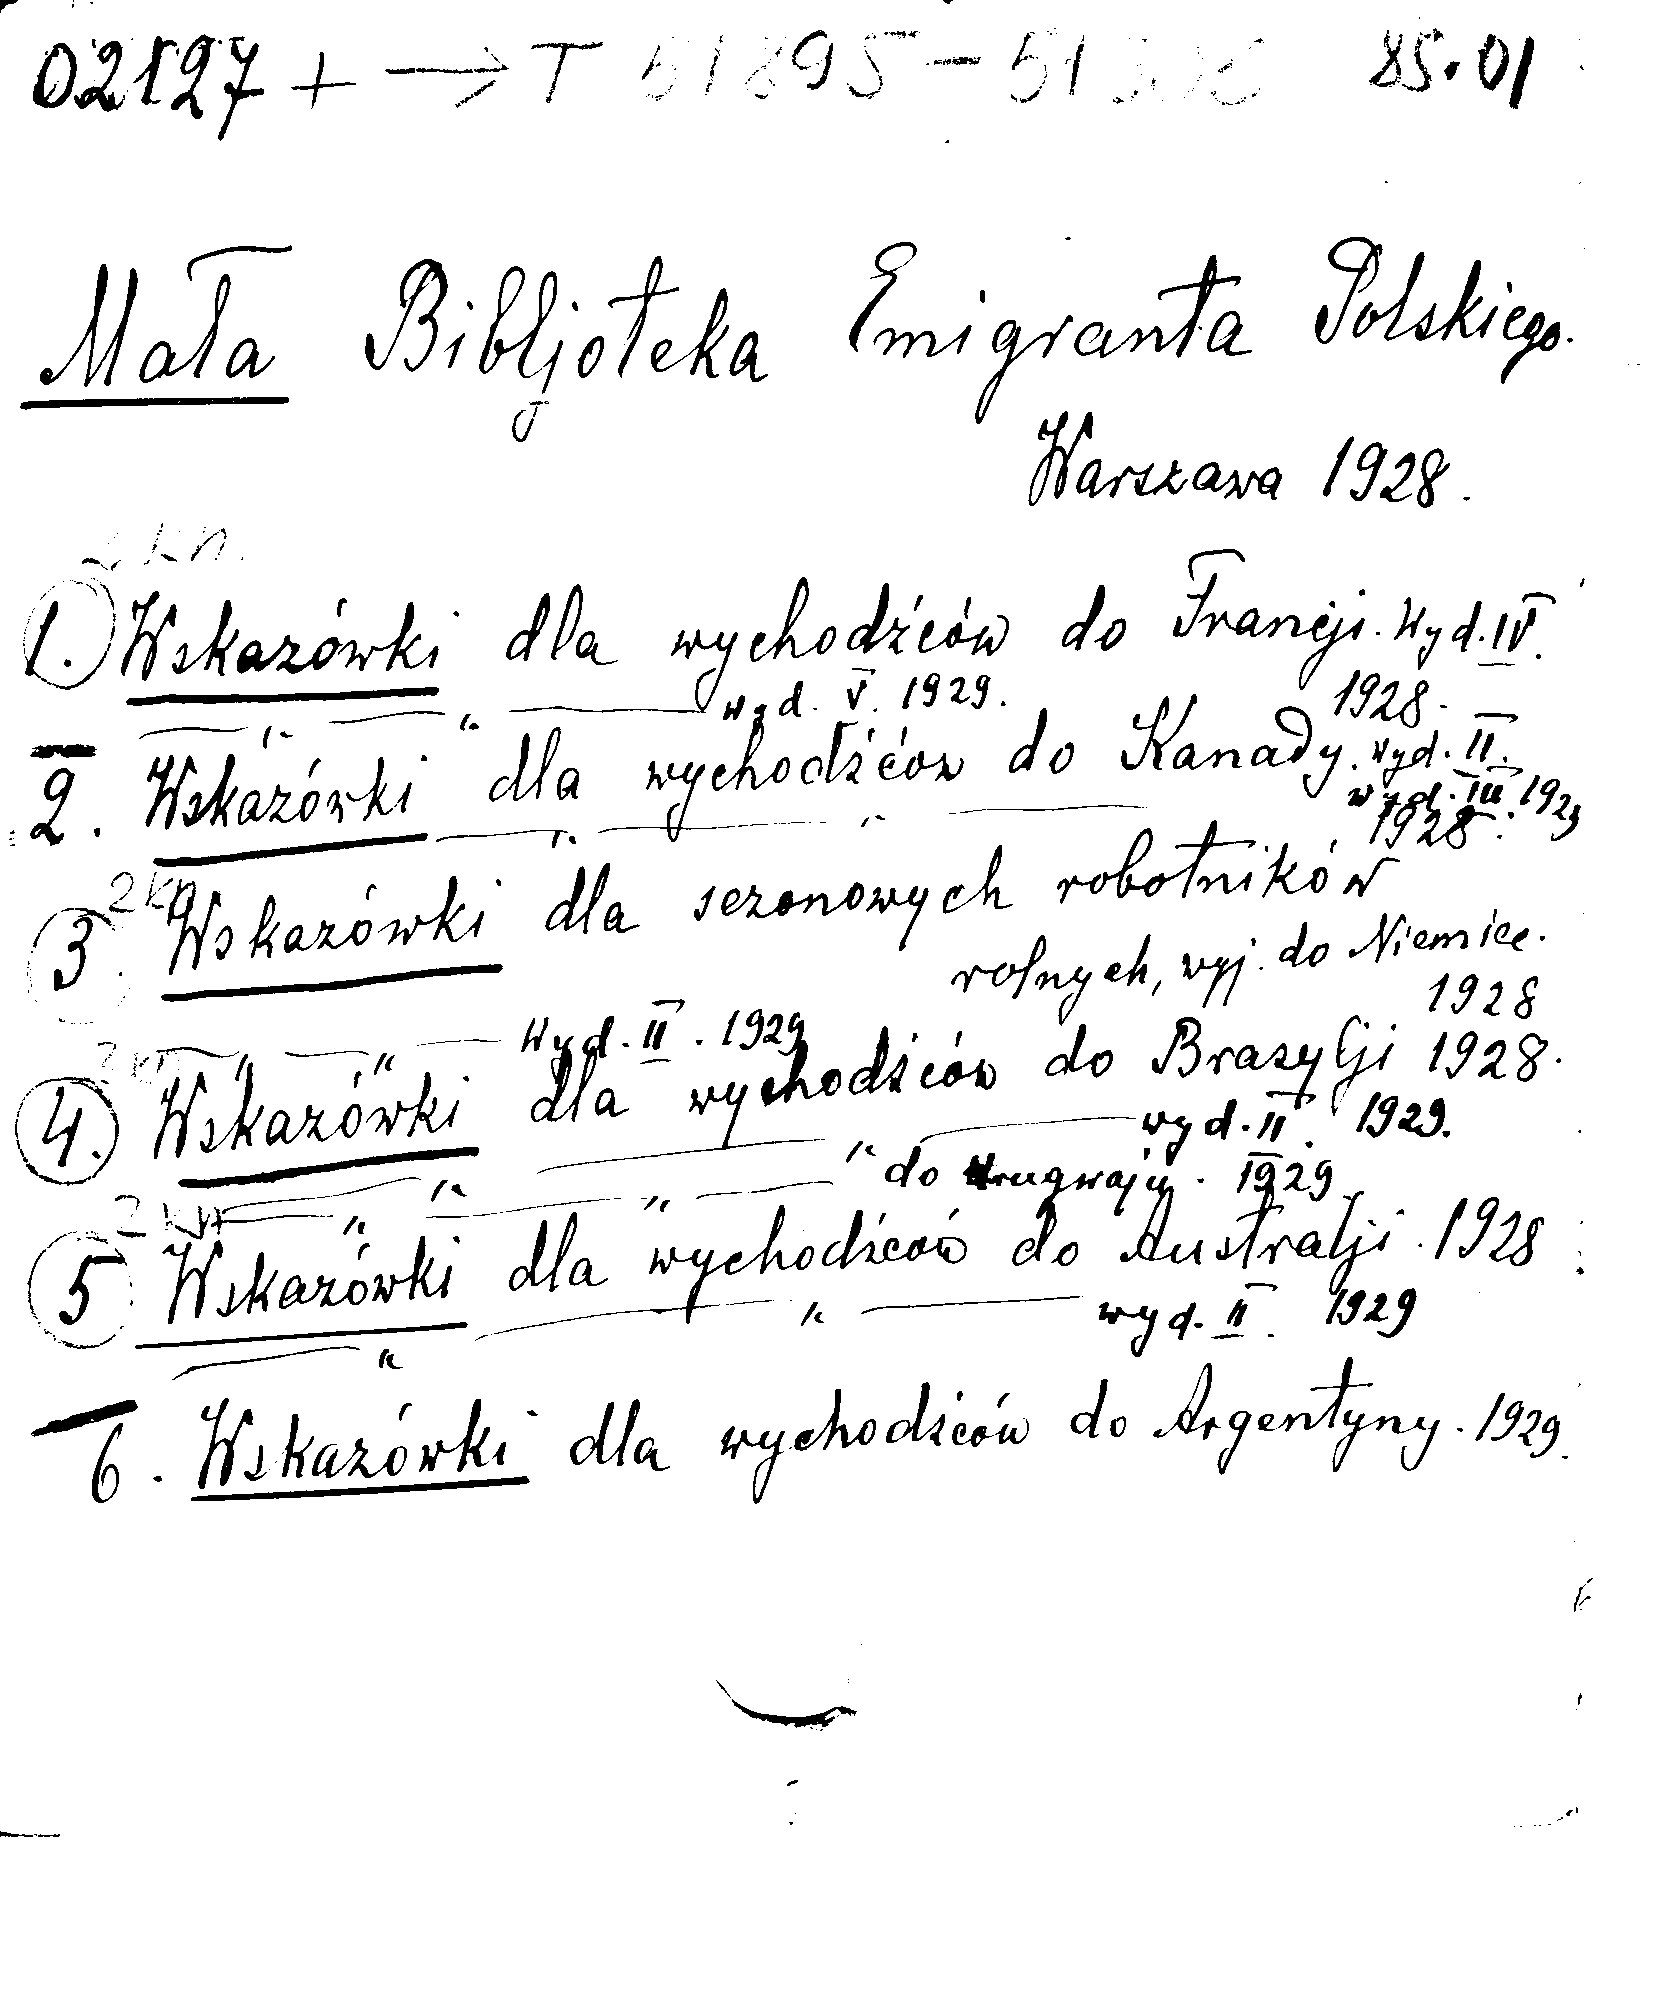 02127 + → T 51895 – 85.01
Mała Bibljoteka Emigranta Polskiego.
Warszawa 1928.
2 kn.
1. Wskazówki dla wychodźców do Francji. Wyd. IV.
1928.
—„— —„— wyd. V. 1929.
2. Wskazówki dla wychodźców do Kanady. Wyd. II.
1928.
—„— —„— wyd. III. 1929
2 kn
3. Wskazówki dla sezonowych robotników
rolnych, wyj. do Niemiec.
1928
—„— —„— Wyd. II. 1929
2 kn
4. Wskazówki dla wychodźców do Brazylji 1928.
—„— —„— wyd. II. 1929.
—„— —„— do Urugwaju. 1929
2 kn
5 Wskazówki dla wychodźców do Australji. 1928
—„— —„— wyd. II. 1929
6. Wskazówki dla wychodźców do Argentyny. 1929.